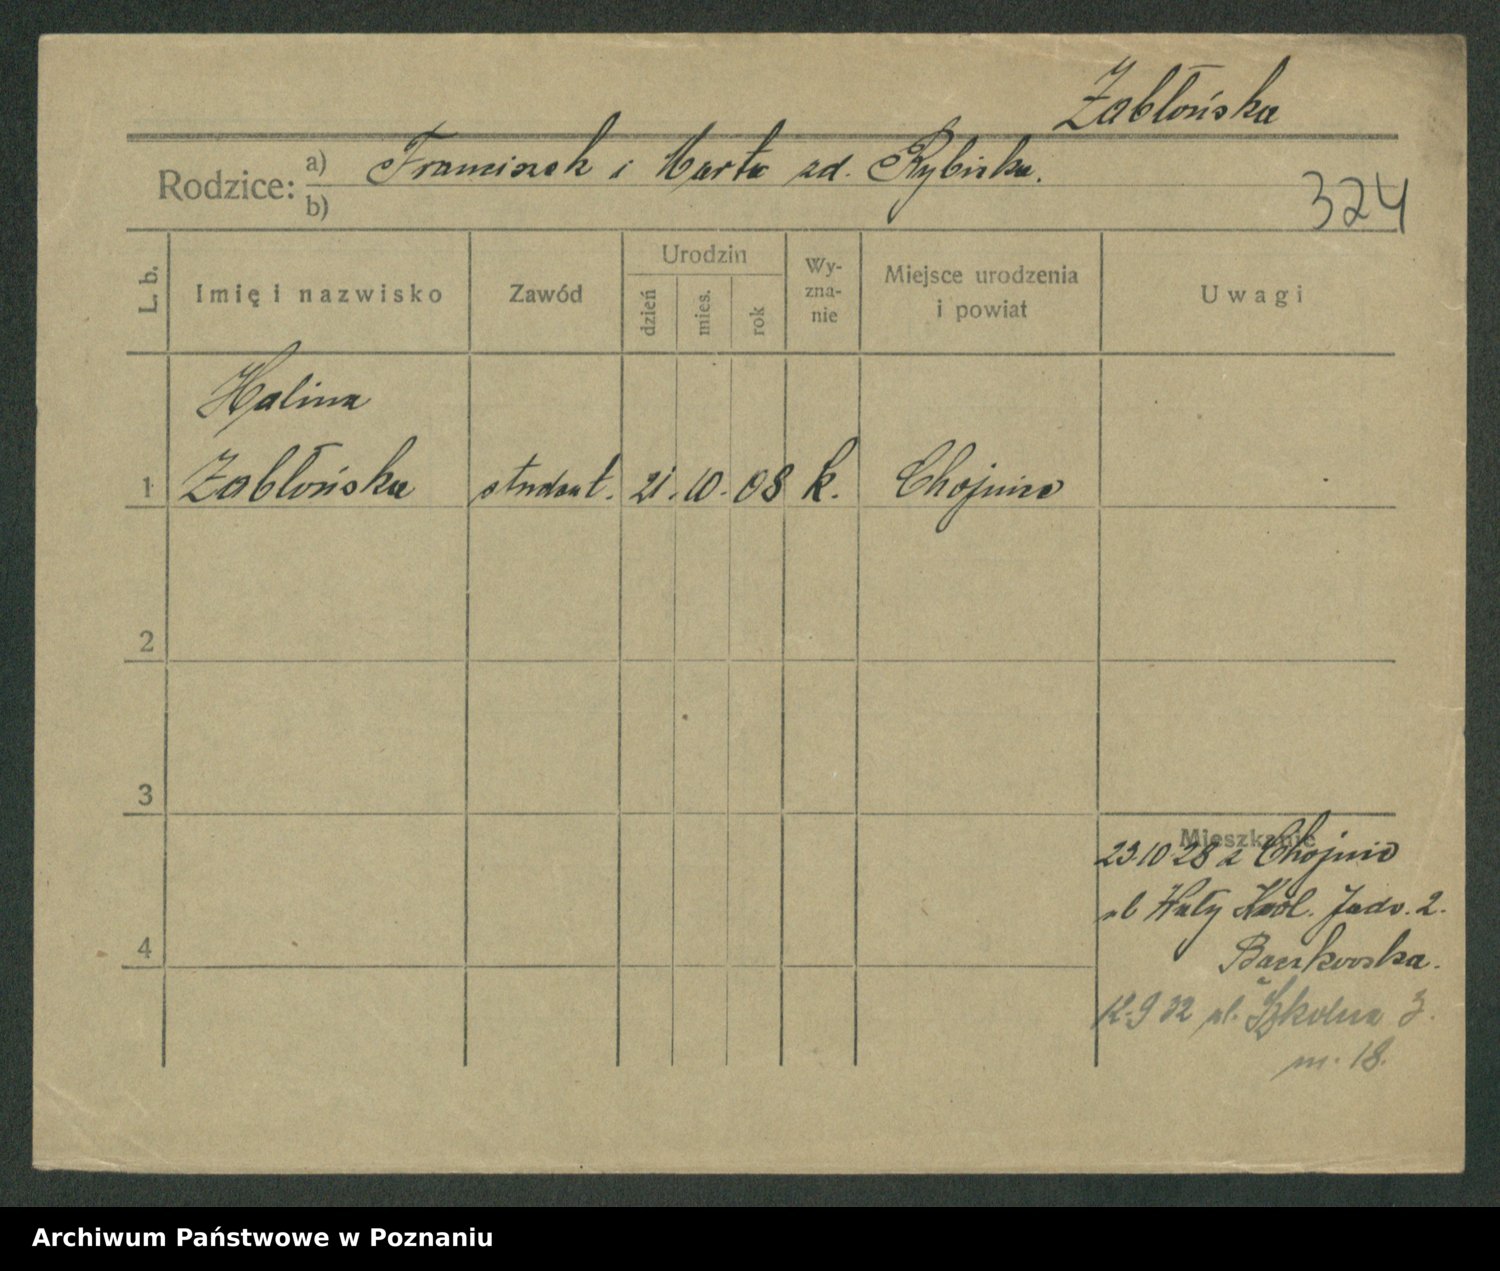 Zabłońska
Rodzice: a) Franciszek i Marta zd. Rybicka.
b)
324
L. b.
Imię i nazwisko
Zawód
Urodzin
dzień
mies.
rok
Wy-
zna-
nie
Miejsce urodzenia
i powiat
Uwagi
Halina
1 Zabłońska student. 21. 10. 08 k. Chojnice
2
3
Mieszkanie
23 10 28 z Chojnic
ul Wały Król. Jadw. 2.
4
12.9 32 ul. Szkolna 3.
m. 18.
Archiwum Państwowe w Poznaniu